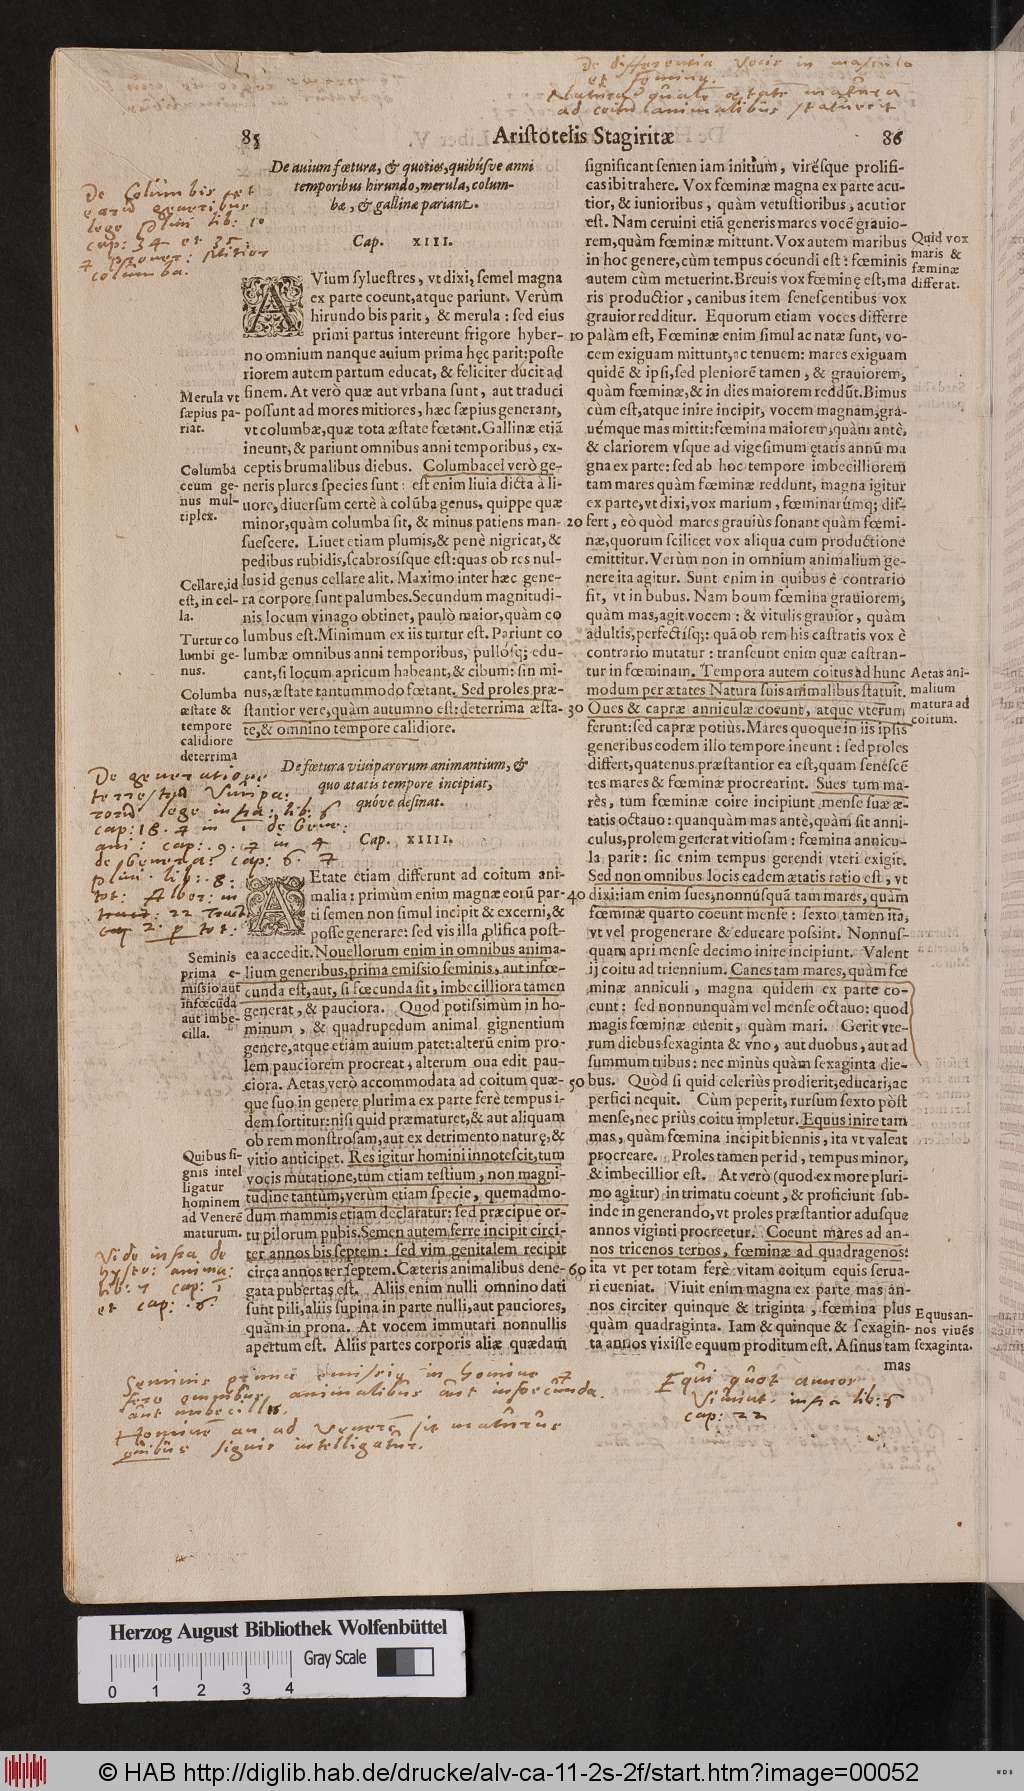 De differentia Vocis in masculo
et foemina.
Natura quale aetate matura
ad coitu animalibus statuerit
85
Aristotelis Stagiritæ
86
De auium fœtura, & quoties, quibúsve anni
temporibus hirundo, merula, colum-
bæ, & gallinæ pariant.
Cap. XIII.
De Columbis et
earum generibus
lege Plini lib: 10
cap: 34 et 35.
columba.
AVium syluestres, vt dixi, semel magna
ex parte coeunt, atque pariunt. Verùm
hirundo bis parit, & merula: sed eius
primi partus intereunt frigore hyber-
no omnium nanque auium prima hęc parit: poste
riorem autem partum educat, & feliciter ducit ad
finem. At verò quæ aut vrbana sunt, aut traduci
possunt ad mores mitiores, hæc sæpius generant,
vt columbæ, quæ tota æstate fœtant. Gallinæ etiã
ineunt, & pariunt omnibus anni temporibus, ex-
ceptis brumalibus diebus. Columbacei verò ge-
neris plures species sunt: est enim liuia dicta à li-
uore, diuersum certè à colũba genus, quippe quæ
minor, quàm columba sit, & minus patiens man-
suescere. Liuet etiam plumis, & penè nigricat, &
pedibus rubidis, scabrosísque est: quas ob res nul-
lus id genus cellare alit. Maximo inter hæc gene-
ra corpore sunt palumbes. Secundum magnitudi-
nis locum vinago obtinet, paulò maior, quàm co
lumbus est. Minimum ex iis turtur est. Pariunt co
lumbæ omnibus anni temporibus, pullósq; edu-
cant, si locum apricum habeant, & cibum: sin mi-
nus, æstate tantummodo fœtant. Sed proles præ-
stantior vere, quàm autumno est: deterrima æsta-
te, & omnino tempore calidiore.
Merula vt
sæpius pa-
riat.
Columba
ceum ge-
nus mul-
tiplex.
Cellare, id
est, in cel-
la.
Turtur co
lumbi ge-
nus.
Columba
æstate &
tempore
calidiore
deterrima
De fœtura viviparorum animantium, &
quo ætatis tempore incipiat,
quóve desinat.
Cap. XIIII.
De generatione
terrestriũ Vivipa.
rorũ lege infra: lib: 6
cap: 18. & in 1 de Gene:
ani: cap: 9. & in 4
de Genera: cap: 6. &
Plini. lib: 8.
tot: Alber: in
cap 2. p tot:
AEtate etiam differunt ad coitum ani-
malia: primùm enim magnæ eorũ par-
ti semen non simul incipit & excerni, &
posse generare: sed vis illa ꝓlifica post-
ea accedit. Nouellorum enim in omnibus anima-
lium generibus, prima emissio seminis, aut infœ-
cunda est, aut, si fœcunda sit, imbecilliora tamen
generat, & pauciora. Quod potissimùm in ho-
minum, & quadrupedum animal gignentium
genere, atque etiàm auium patet: alterũ enim pro-
lem pauciorem procreat, alterum oua edit pau-
ciora. Aetas verò accommodata ad coitum quæ-
que suo in genere plurima ex parte ferè tempus i-
dem sortitur: nisi quid præmaturet, & aut aliquam
ob rem monstrosam, aut ex detrimento naturę, &
vitio anticipet. Res igitur homini innotescit, tum
vocis mutatione, tùm etiam testium, non magni-
tudine tantùm, verùm etiam specie, quemadmo-
dum mammis etiam declaratur: sed præcipuè or-
tu pilorum pubis. Semen autem ferre incipit circi-
ter annos bis septem: sed vim genitalem recipit
circa annos ter septem. Cæteris animalibus dene-
gata pubertas est. Aliis enim nulli omnino dati
sunt pili, aliis supina in parte nulli, aut pauciores,
quàm in prona. At vocem immutari nonnullis
apertum est. Aliis partes corporis aliæ quædam
Seminis
prima e-
missio aut
infœcũda
aut imbe-
cilla.
Quibus si-
gnis intel
ligatur
hominem
ad Venerẽ
maturum.
Vide infra de
hysto: anima:
lib: 7 cap: 1
et cap: 6.
10
20
30
40
50
60
significant semen iam initium, virésque prolifi-
cas ibi trahere. Vox fœminæ magna ex parte acu-
tior, & iunioribus, quàm vetustioribus, acutior
est. Nam ceruini etiã generis mares vocẽ grauio-
rem, quàm fœminæ mittunt. Vox autem maribus
in hoc genere, cùm tempus coeundi est: fœminis
autem cùm metuerint. Breuis vox fœminę est, ma
ris productior, canibus item senescentibus vox
grauior redditur. Equorum etiam voces differre
palàm est, Fœminæ enim simul ac natæ sunt, vo-
cem exiguam mittunt, ac tenuem: mares exiguam
quidẽ & ipsi, sed pleniorẽ tamen, & grauiorem,
quàm fœminæ, & in dies maiorem reddũt. Bimus
cùm est, atque inire incipit, vocem magnam, gra-
uémque mas mittit: fœmina maiorem, quàm antè,
& clariorem vsque ad vigesimum ętatis annũ ma
gna ex parte: sed ab hoc tempore imbecilliorem
tam mares quàm fœminæ reddunt, magna igitur
ex parte, vt dixi, vox marium, fœminarúmq; dif-
fert, eò quòd mares grauiùs sonant quàm fœmi-
næ, quorum scilicet vox aliqua cum productione
emittitur. Verùm non in omnium animalium ge-
nere ita agitur. Sunt enim in quibus è contrario
fit, vt in bubus. Nam boum fœmina grauiorem,
quàm mas, agit vocem: & vitulis grauior, quàm
adultis, perfectísq;: quã ob rem his castratis vox è
contrario mutatur: transeunt enim quæ castran-
tur in fœminam. Tempora autem coitus ad hunc
modum per ætates Natura suis animalibus statuit.
Oues & capræ anniculæ coeunt, atque vterum
ferunt: sed capræ potiùs. Mares quoque in iis ipsis
generibus eodem illo tempore ineunt: sed proles
differt, quatenus præstantior ea est, quam senescẽ
tes mares & fœminæ procrearint. Sues tum ma-
rès, tum fœminæ coire incipiunt mense suæ æ-
tatis octauo: quanquàm mas antè, quàm sit anni-
culus, prolem generat vitiosam: fœmina annicu-
la parit: sic enim tempus gerendi vteri exigit.
Sed non omnibus locis eadem ætatis ratio est, vt
dixi: iam enim sues, nonnusquã tam mares, quàm
fœminæ quarto coeunt mense: sexto tamen ita,
vt vel progenerare & educare possint. Nonnus-
quam apri mense decimo inire incipiunt. Valent
ij coitu ad triennium. Canes tam mares, quàm fœ
minæ anniculi, magna quidem ex parte co-
eunt: sed nonnunquàm vel mense octauo: quod
magis fœminæ euenit, quàm mari. Gerit vte-
rum diebus sexaginta & vno, aut duobus, aut ad
summum tribus: nec minùs quàm sexaginta die-
bus. Quòd si quid celeriùs prodierit, educari, ac
perfici nequit. Cùm peperit, rursum sexto pòst
mense, nec priùs coitu impletur. Equus inire tam
mas, quàm fœmina incipit biennis, ita vt valeat
procreare. Proles tamen per id, tempus minor,
& imbecillior est. At verò (quod ex more pluri-
mo agitur) in trimatu coeunt, & proficiunt sub-
inde in generando, vt proles præstantior adusque
annos viginti procreetur. Coeunt mares ad an-
nos tricenos ternos, fœminæ ad quadragenos:
ita vt per totam ferè vitam coitum equis serua-
ri eueniat. Viuit enim magna ex parte mas an-
nos circiter quinque & triginta, fœmina plus
quàm quadraginta. Iam & quinque & sexagin-
ta annos vixisse equum proditum est. Asinus tam
mas
Quid vox
maris &
fæminæ
differat.
Aetas ani-
malium
matura ad
coitum.
Equus an-
nos viuẽs
sexaginta.
Seminis prima emissio in homine &
fere omnibus animalibus aut infoecunda.
aut imbecillis.
Hominẽ an ad Venerẽ sit maturus
quibus signis intelligatur.
Equi quot annos
Vivunt. infra lib: 6
cap: 22
Herzog August Bibliothek Wolfenbüttel
Gray Scale
0 1 2 3 4
© HAB http://diglib.hab.de/drucke/alv-ca-11-2s-2f/start.htm?image=00052